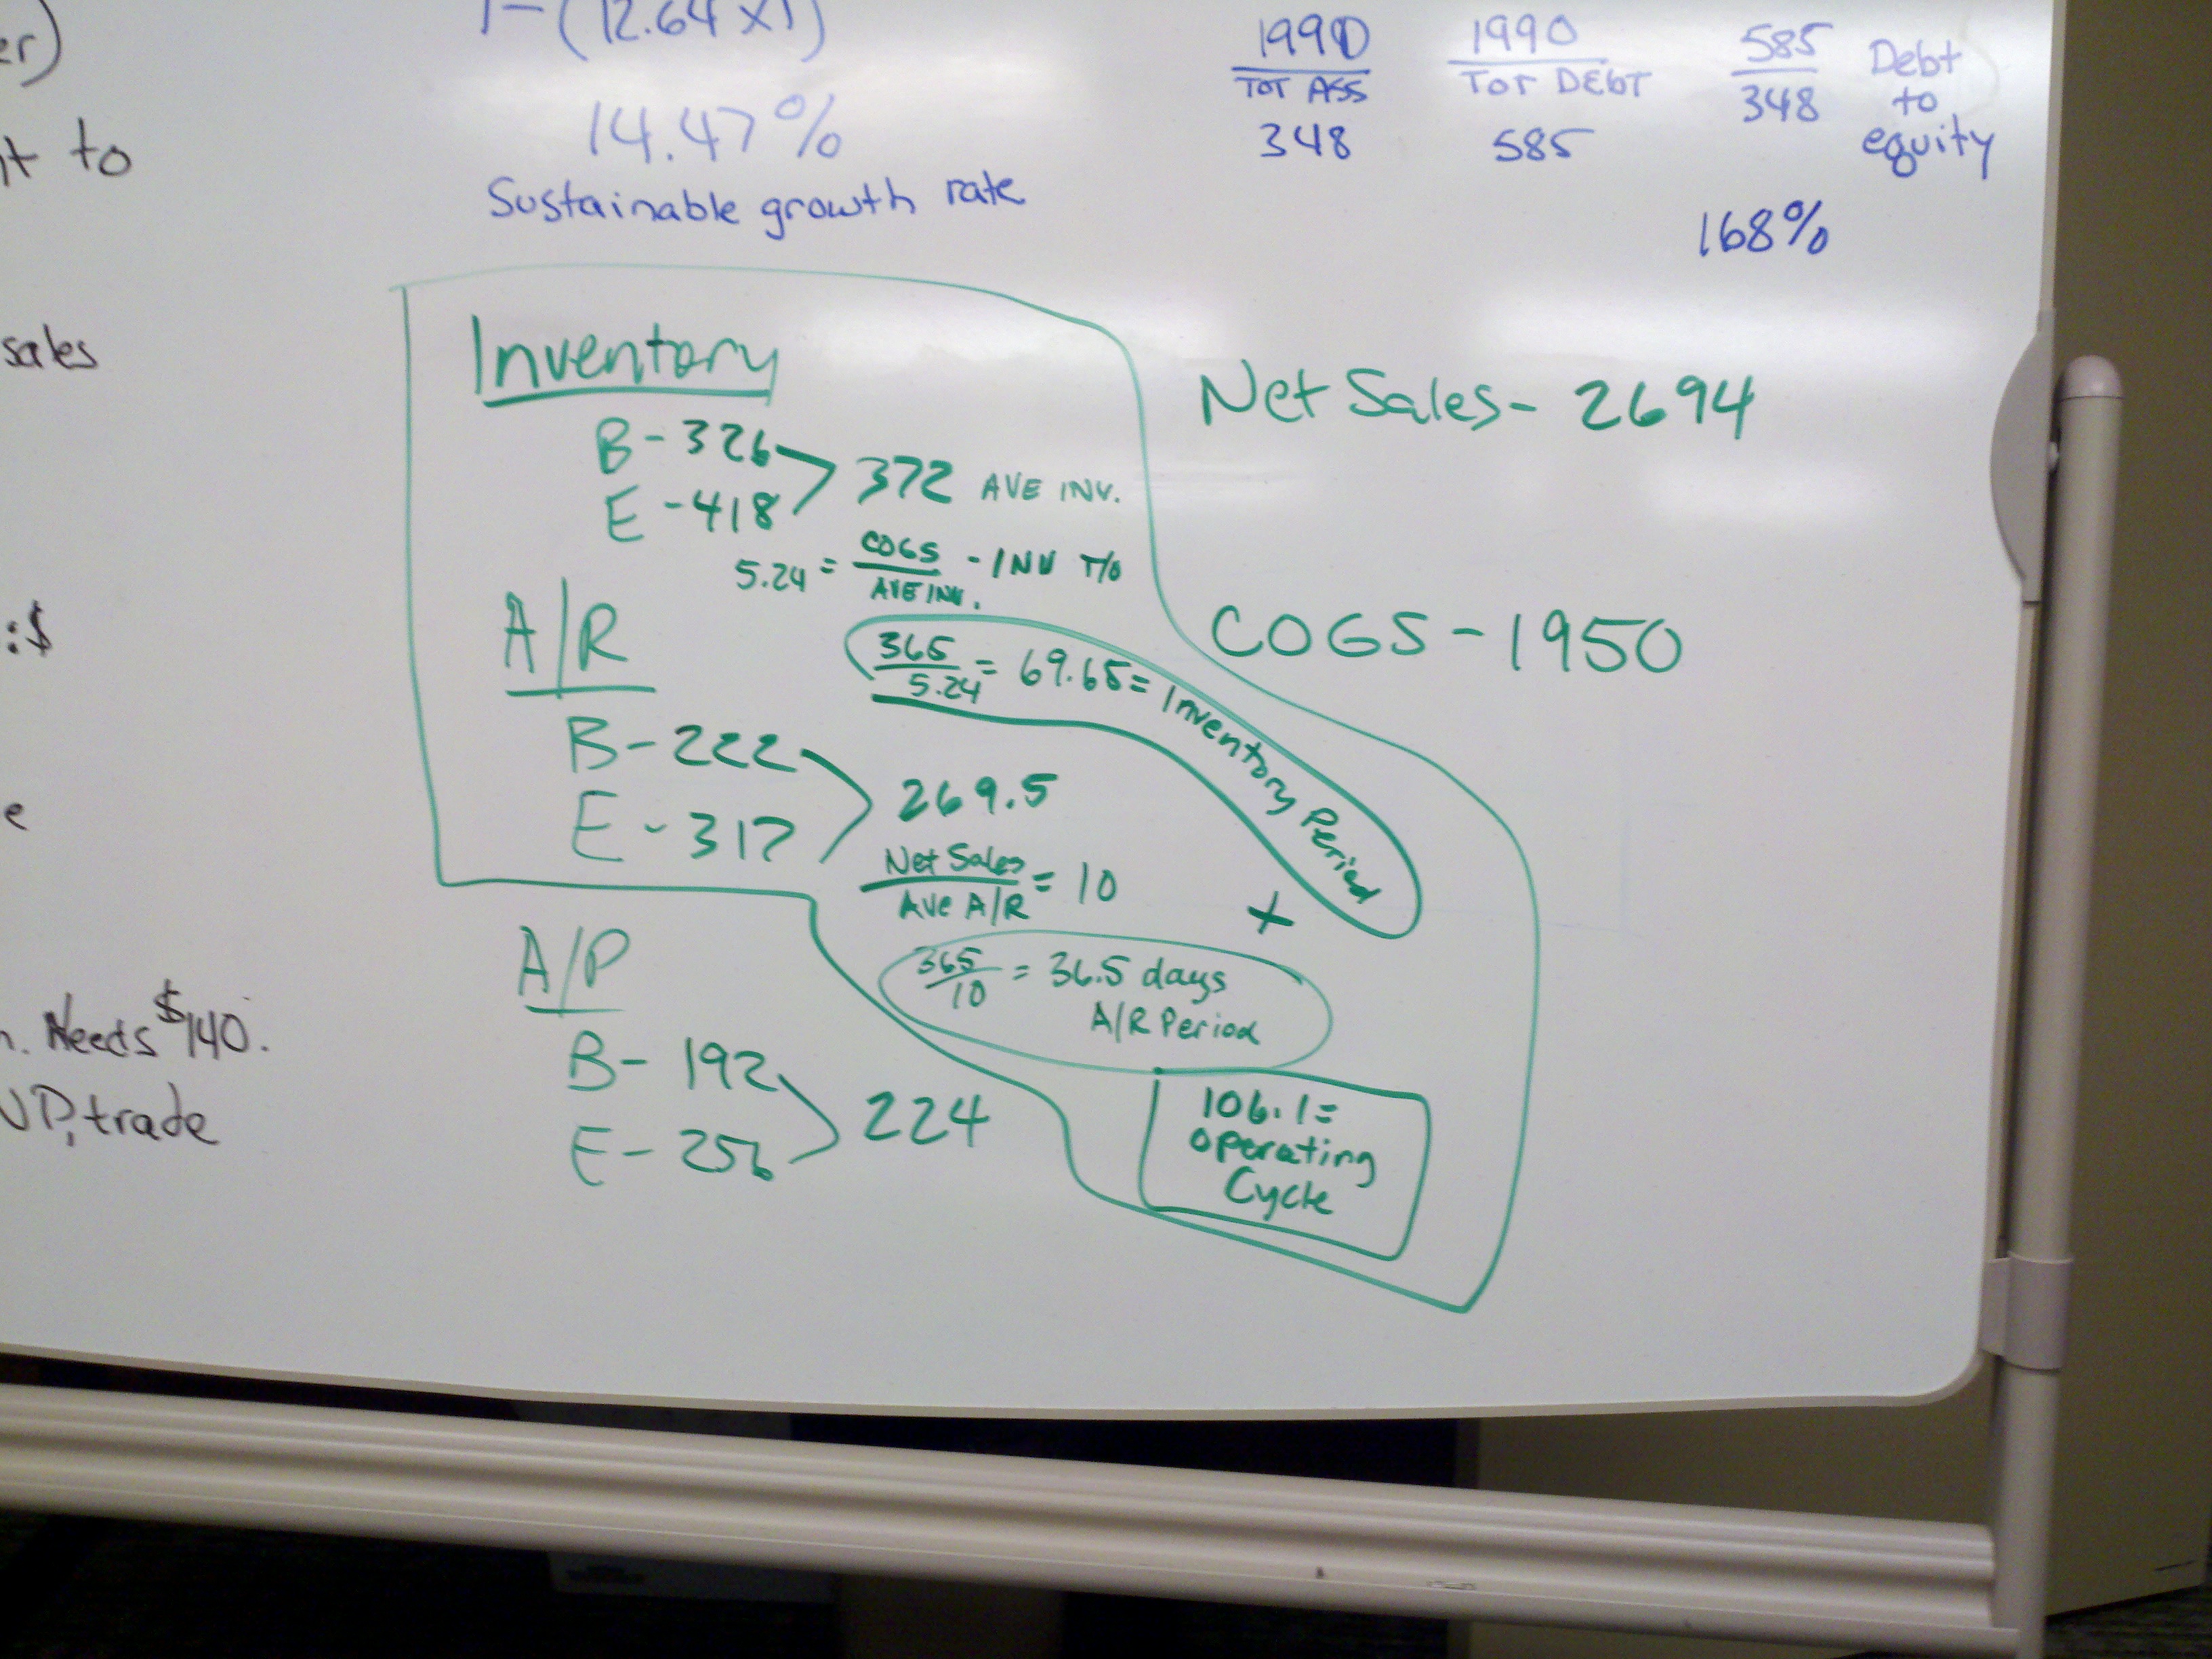 1-(12.64 x 1)
14.47%
Sustainable growth rate
1990
TOT ASS
348
1990
TOT DEBT
585
585
348
Debt
to
equity
168%
er)
to
sales
:$
e
Needs $140.
trade
Inventory
B-326
E-418
372 AVE INV.
5.24 = COGS - INV T/O
AVE INV.
365
5.24
= 69.65 = Inventory Period
A/R
B-222
E-317
269.5
Net Sales
Ave A/R
= 10
+
365
10
= 36.5 days
A/R Period
106.1=
Operating
Cycle
A/P
B-192
E-256
224
Net Sales- 2694
COGS-1950